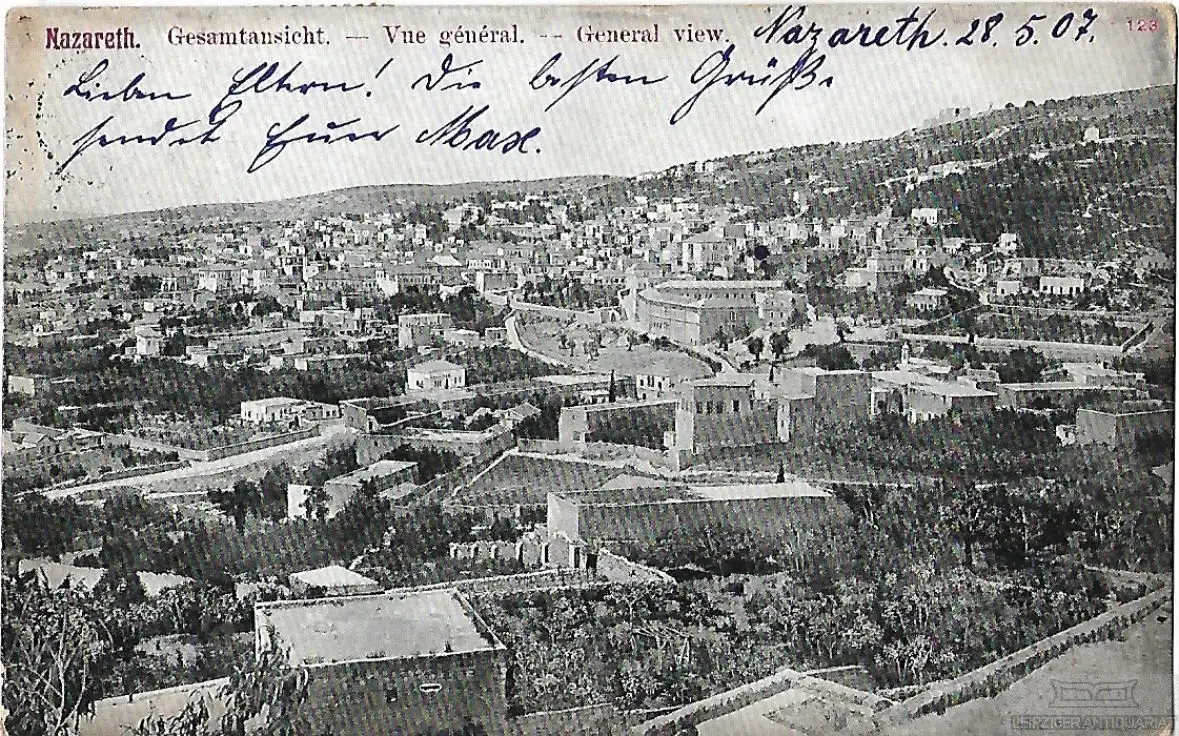 Nazareth. Gesamtansicht. — Vue général. -- General view. Nazareth. 28. 5. 07. 123
Lieben Eltern! Die besten Grüße
sendet Euer Max.
LEIPZIGER ANTIQUARIAT